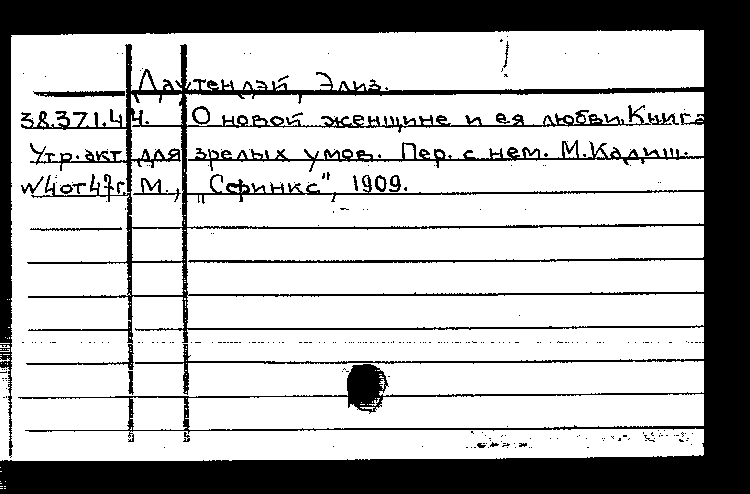 Даутендэй, Элиз.
38.37.1.44. О новой женщине и ея любви. Книга
Утр. акт для зрелых умов. Пер. с нем. М. Кадиш.
№4 от 47г. М., „Сфинкс", 1909.